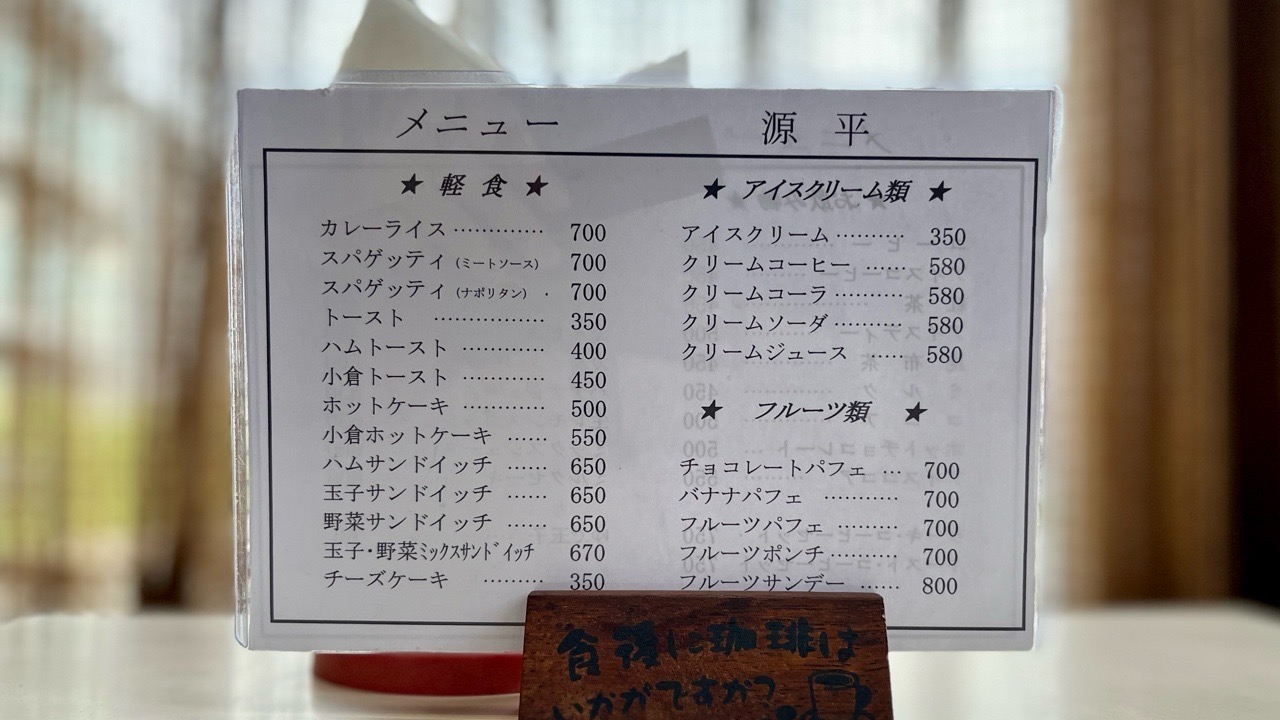 メニュー 源平
★ 軽食 ★
カレーライス ············· 700
スパゲッティ (ミートソース) 700
スパゲッティ (ナポリタン) · 700
トースト ················ 350
ハムトースト ············ 400
小倉トースト ············ 450
ホットケーキ ············ 500
小倉ホットケーキ ······ 550
ハムサンドイッチ ······ 650
玉子サンドイッチ ······ 650
野菜サンドイッチ ······ 650
玉子・野菜ミックスサンドイッチ 670
チーズケーキ ········· 350
★ アイスクリーム類 ★
アイスクリーム ·········· 350
クリームコーヒー ······ 580
クリームコーラ ·········· 580
クリームソーダ ·········· 580
クリームジュース ····· 580
★ フルーツ類 ★
チョコレートパフェ ··· 700
バナナパフェ ··········· 700
フルーツパフェ ········· 700
フルーツポンチ ·········· 700
フルーツサンデー ······ 800
食後に珈琲は
いかがですか?